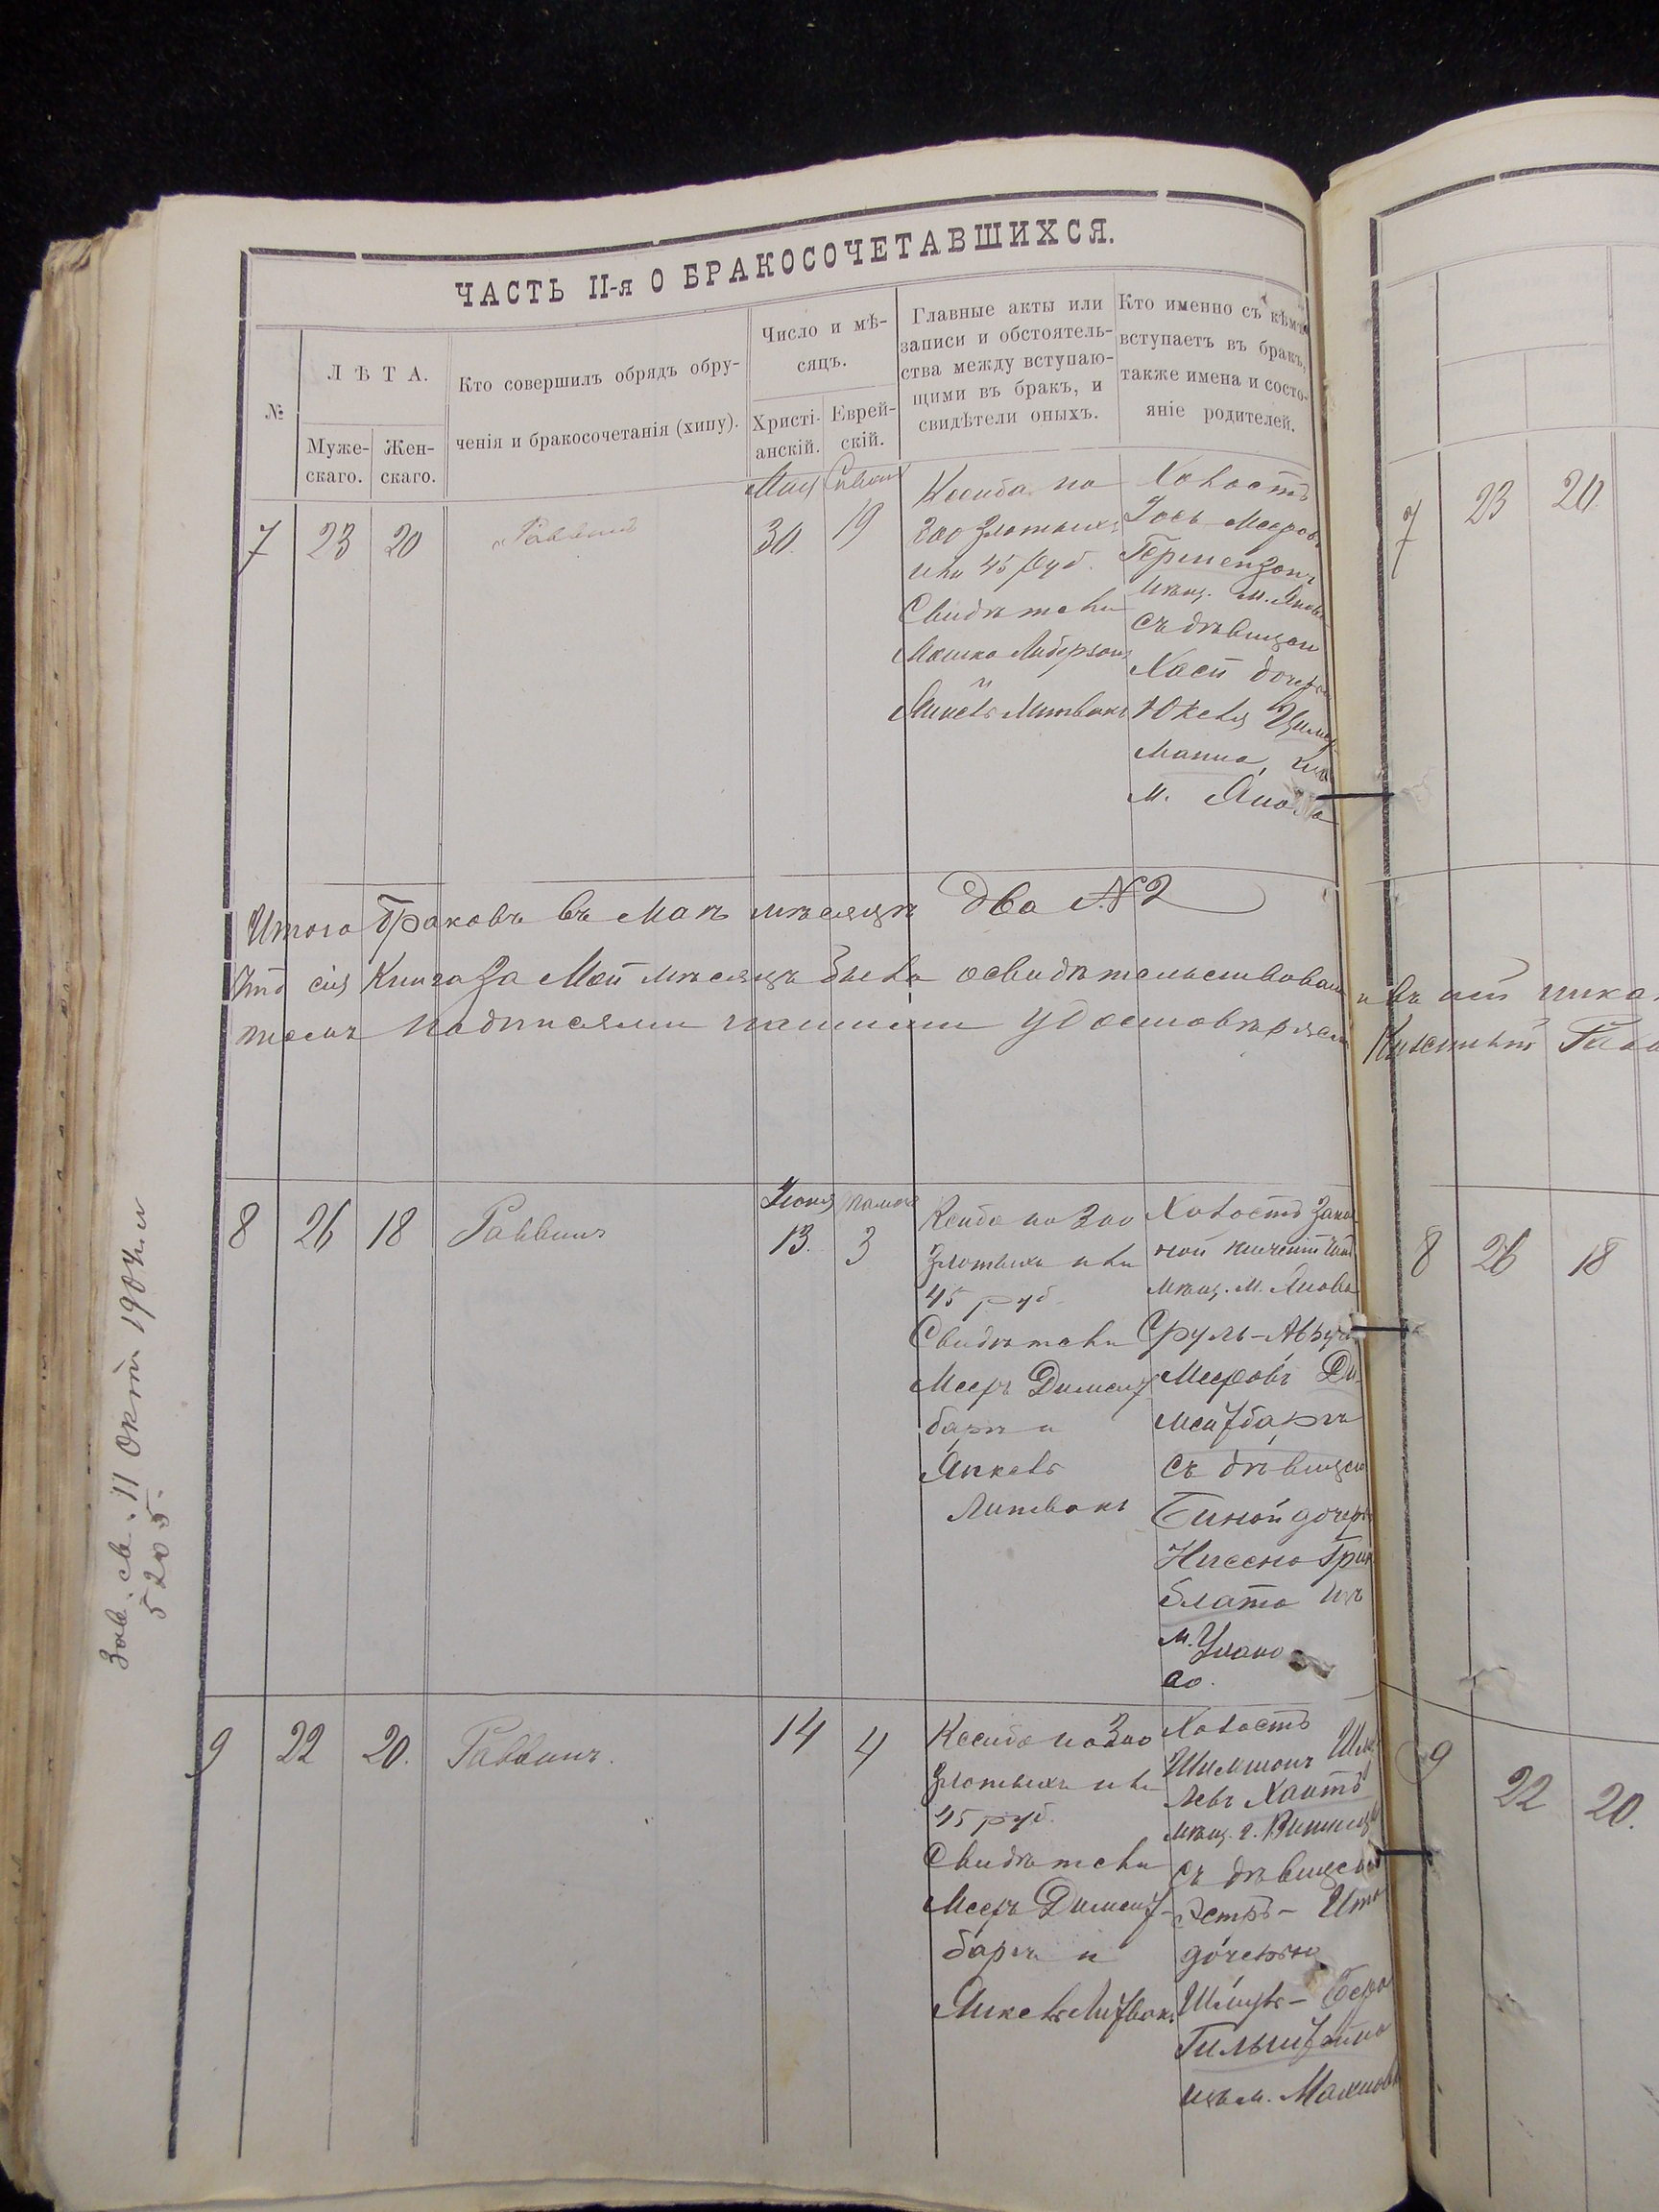 ЧАСТЬ II-я О БРАКОСОЧЕТАВШИХСЯ.
№
ЛѢТА.
Муже-
скаго.
Жен-
скаго.
Кто совершилъ обрядъ обру-
ченія и бракосочетанія (хипу).
Число и мѣ-
сяцъ.
Христі-
анскій.
Еврей-
скій.
Главные акты или
записи и обстоятель-
ства между вступаю-
щими въ бракъ, и
свидѣтели оныхъ.
Кто именно съ кѣмъ
вступаетъ въ бракъ,
также имена и состо-
яніе родителей.
7
23
20
Раввинъ
Мая
30.
Сивана
19
Ксиба на
200 злотыхъ
или 45 руб.
Свидѣтели
Мошко Либерзонъ
и
Янкель Литвакъ
Холостъ
Іось Мееровъ
Гершензонъ
мѣщ. м. Янова
съ дѣвицей
Хаей дочерью
Юкеля Цимер
мана, изъ
м. Янова
Итого браковъ въ Маѣ мѣсяцѣ два №2
Что сія книга за Май мѣсяцъ была освидѣтельствована и въ ней никак
темъ подписями нашими удостовѣряемъ
8
26
18
Раввинъ
Іюня
13.
Тамуза
3
Ксиба на 200
злотыхъ или
45 руб.
Свидѣтели
Мееръ Димент
баръ и
Янкель
Литвакъ
Холостъ запас
ной
мѣщ. м. Янова
Сруль-Абрумъ
Мееровъ Ди-
ментбаръ
съ дѣвицей
Биной дочерью
Ниссона Грин
блата изъ
м. Улано
ва.
9
22
20.
Раввинъ.
14
4
Ксиба на 200
злотыхъ или
45 руб.
Свидѣтели
Мееръ Димент-
баръ и
Янкель Литвакъ
Холостъ
Шимшонъ
мѣщ. г. Винницы
съ дѣвицей
Эстръ-
дочерью
Шмуль-Бера
изъ м.
Зав. св. 11 Окт 1904 г
5205.
7
23
20.
8
26
18
9
22
20.